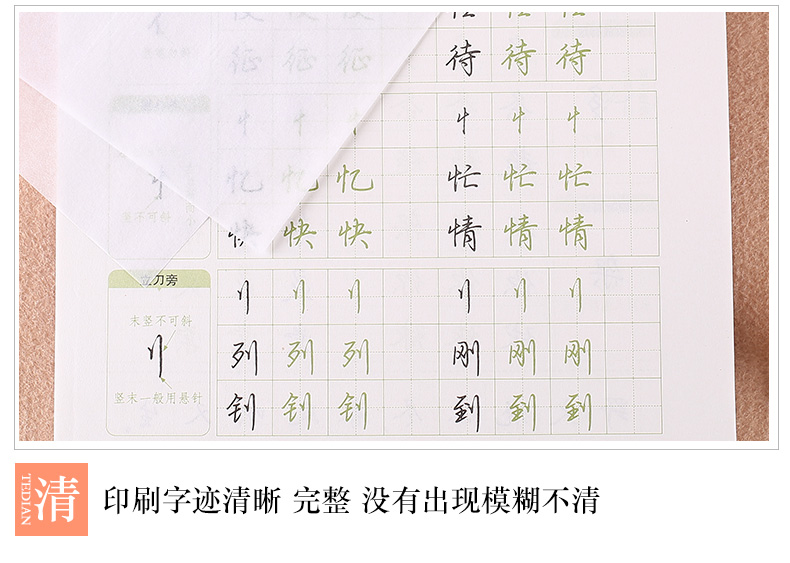 征 征 征 待 待 待
忄 忄 忄 忄 忄 忄
忆 忆 忆 忙 忙 忙
竖不可斜
快 快 快 情 情 情
立刀旁
刂 刂 刂 刂 刂 刂
末竖不可斜
刂
列 列 列 刚 刚 刚
竖末一般用悬针
钊 钊 钊 到 到 到
TEDIAN
清
印刷字迹清晰 完整 没有出现模糊不清